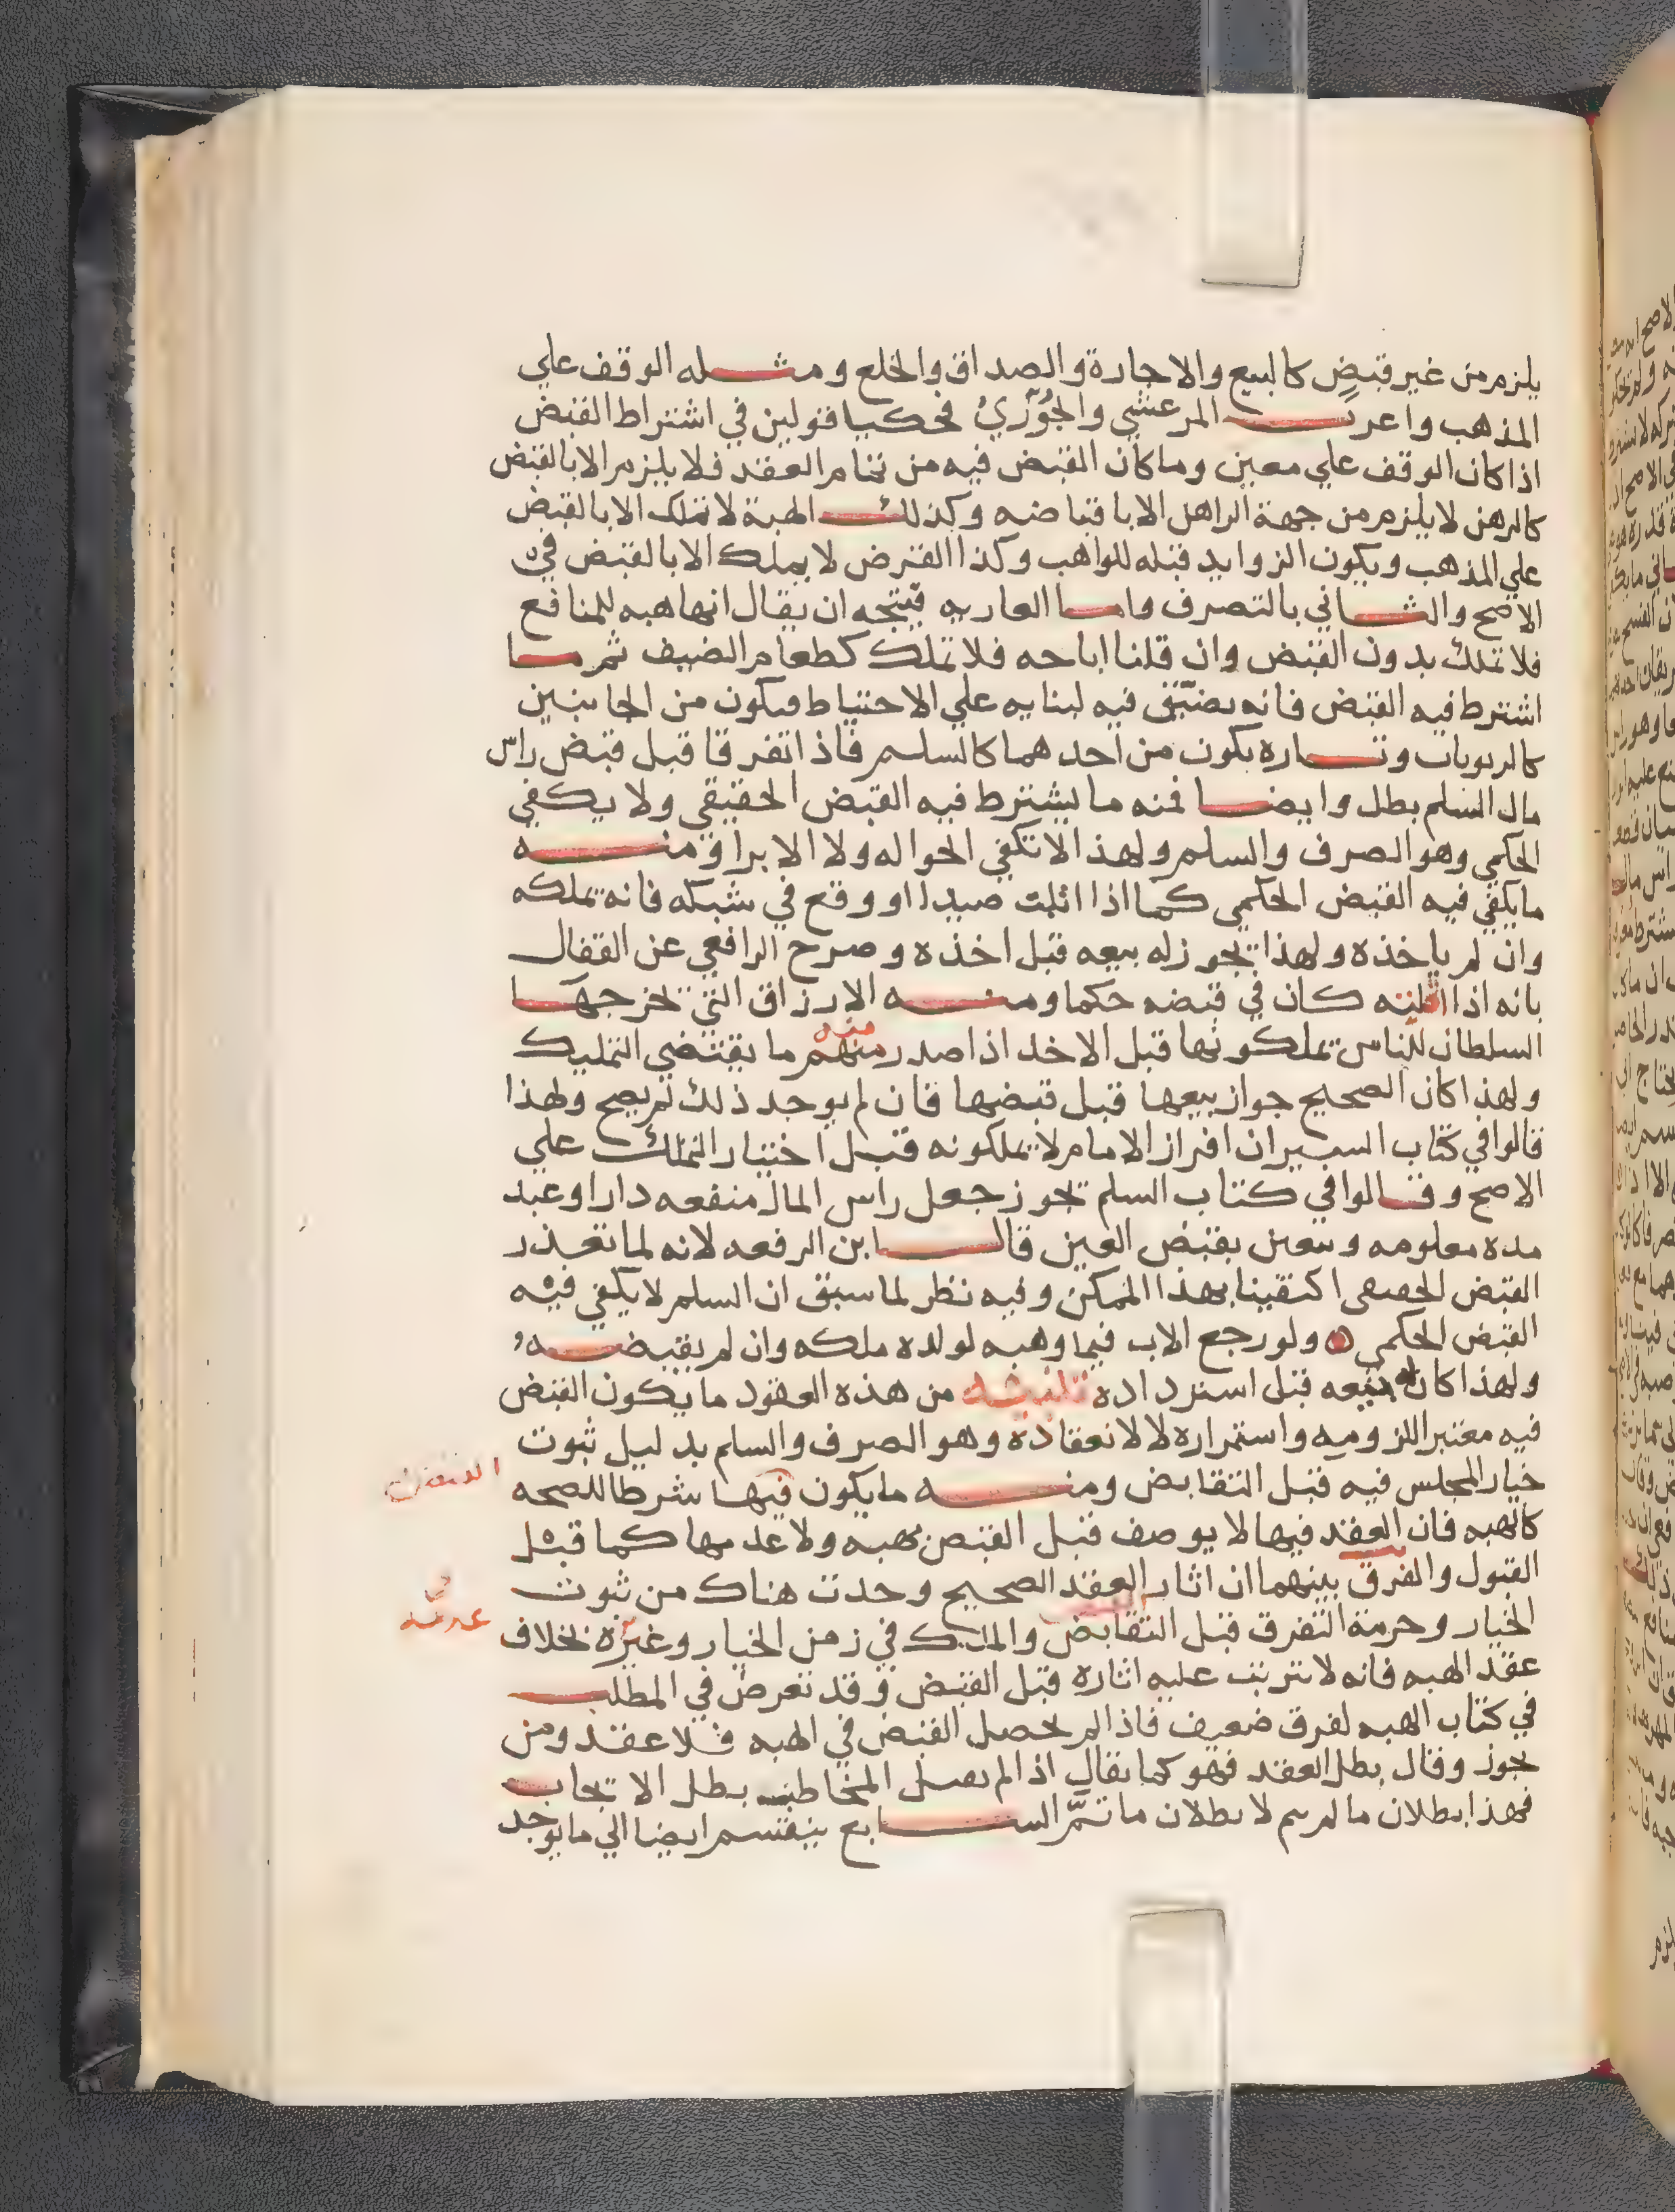 يلزم من غير قبض كالبيع والاجارة والصداق والخلع ومثله الوقف علي
المذهب واغرب المرعشي والجُوري فحكيا قولين في اشتراط القبض
اذا كان الوقف علي معين وما كان القبض فيه من تمام العقد فلا يلزم الا بالقبض
كالرهن لا يلزم من جهة الراهن الا باقباضه وكذلك الهبة لا تملك الا بالقبض
علي المذهب ويكون الزوايد قبله للواهب وكذا القرض لا يملك الا بالقبض في
الاصح والثاني بالتصرف واما العاريه فيتجه ان يقال انها هبه للمنافع
فلا تملك بدون القبض وان قلنا اباحه فلا تملك كطعام الضيف ثم ما
اشترط فيه القبض فانه يضيّق فيه لبنايه علي الاحتياط فيكون من الجانبين
كالربويات وتاره يكون من احدهما كالسلم فاذا تفرقا قبل قبض راس
مال السلم بطل وايضا فمنه ما يشترط فيه القبض الحقيقي ولا يكفي
الحكمي وهو الصرف والسلم ولهذا لا تكفي الحواله ولا الابرا ومنه
ما يكفي فيه القبض الحكمي كما اذا اثبت صيدا او وقع في شبكه فانه يملكه
وان لم ياخذه ولهذا يجوز له بيعه قبل اخذه وصرح الرافعي عن القفال
بانه اذا اثبته كان في قبضه حكما ومنه الارزاق التي تخرجها
السلطان للناس يملكونها قبل الاخد اذا صدر منهم منه ما يقتضي التمليك
ولهذا كان الصحيح جواز بيعها قبل قبضها فان لم يوجد ذلك لم يصح ولهذا
قالوا في كتاب السير ان افراز الامام لا يملكونه قبل اختيار التملك علي
الاصح وقالوا في كتاب السلم تجوز جعل راس المال منفعه دارا وعبد
مده معلومه ويتعين بقبض العين قال ابن الرفعه لانه لما تعذر
القبض الحقيقي اكتفينا بهذا الممكن وفيه نظر لما سبق ان السلم لا يكفي فيه
القبض الحكمي ولو رجع الاب فيما وهبه لولده ملكه وان لم يقبضه
ولهذا كان له بيعه قبل استرداده من هذه العقود ما يكون القبض
فيه معتبرا للزوميه واستمراره لا لانعقاده وهو الصرف والسلم بدليل ثبوت
خيار المجلس فيه قبل التقابض ومنه ما يكون فيها شرطا للصحه
كالهبه فان العقد فيها لا يوصف قبل القبض بهبه ولا عدمها كما قبل
القبول والفرق بينهما ان اثار العقد الصحيح وجدت هناك من ثبوت
الخيار وحرمة التفرق قبل التقابض والملك في زمن الخيار وغيره بخلاف
عقد الهبه فانه لا يترتب عليه اثاره قبل القبض وقد تعرض في المطلب
في كتاب الهبه لفرق ضعيف فاذا لم يحصل القبض في الهبه فلا عقد ومن
يجوز وقال بطل العقد فهو كما يقال اذا لم يقبل المخاطب بطل الايجاب
فهذا بطلان ما لم يتم لا بطلان ما تمّ السابع ينقسم ايضا الي ما يوجد